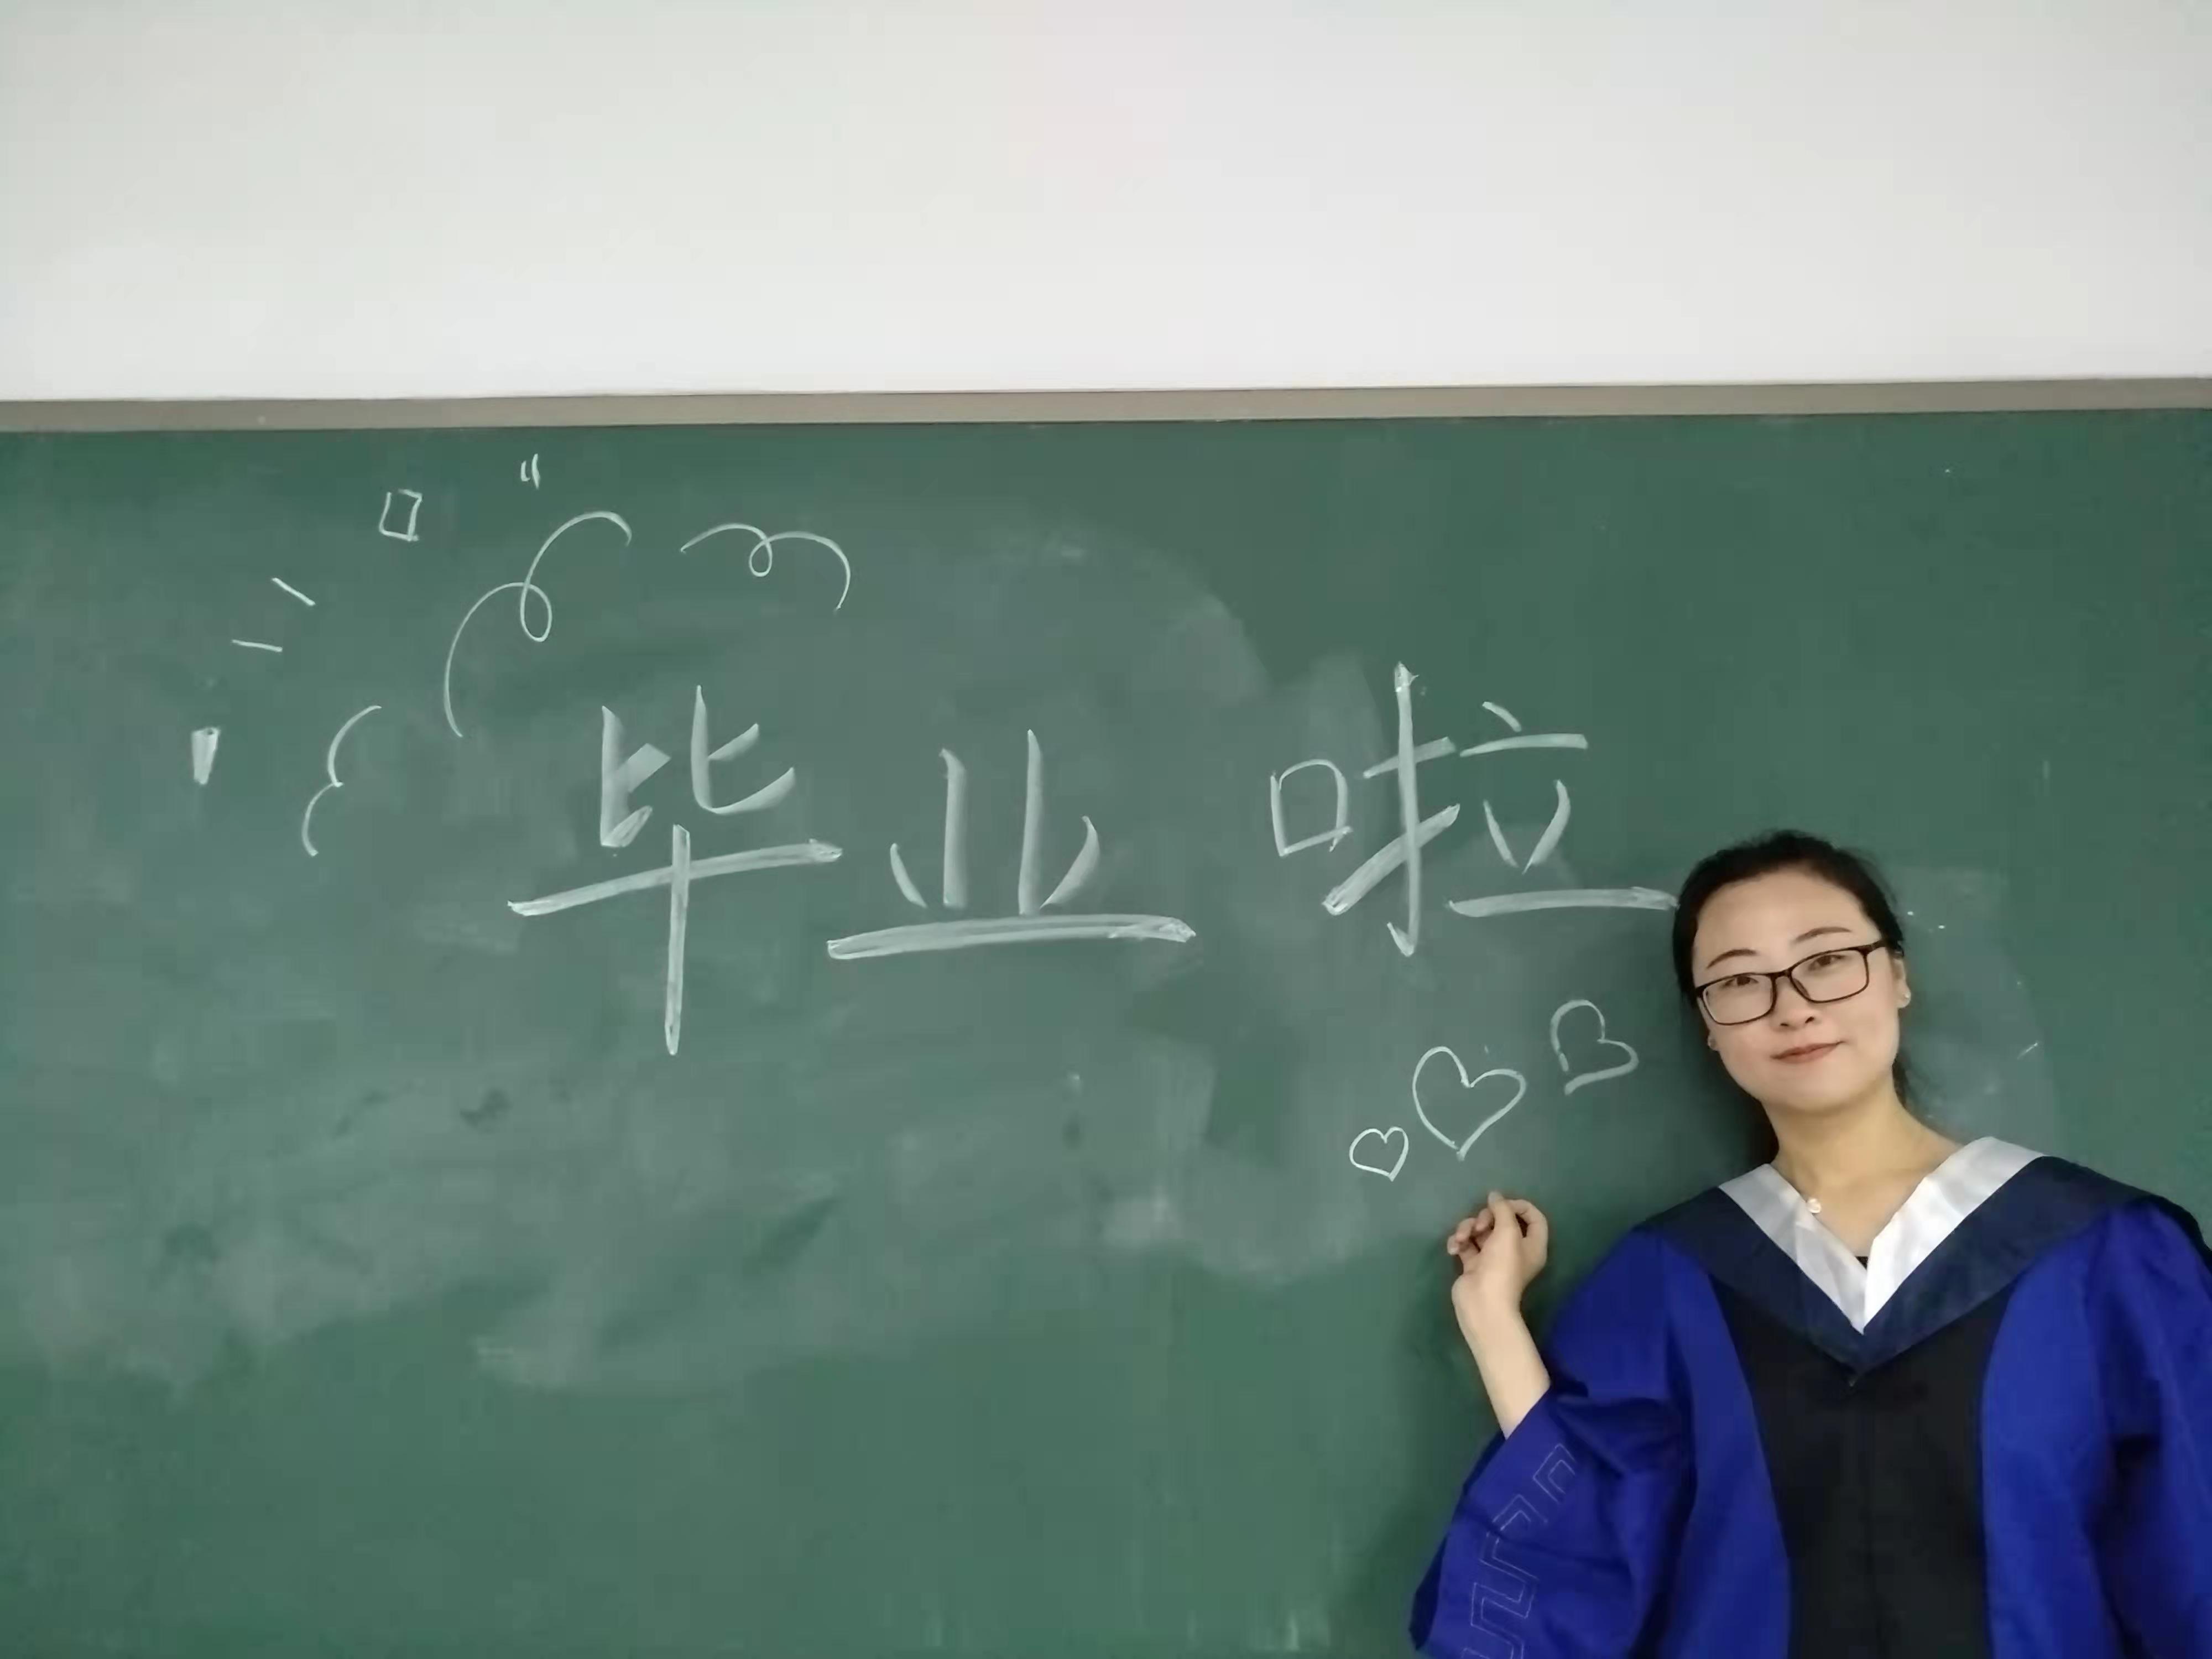 毕业啦